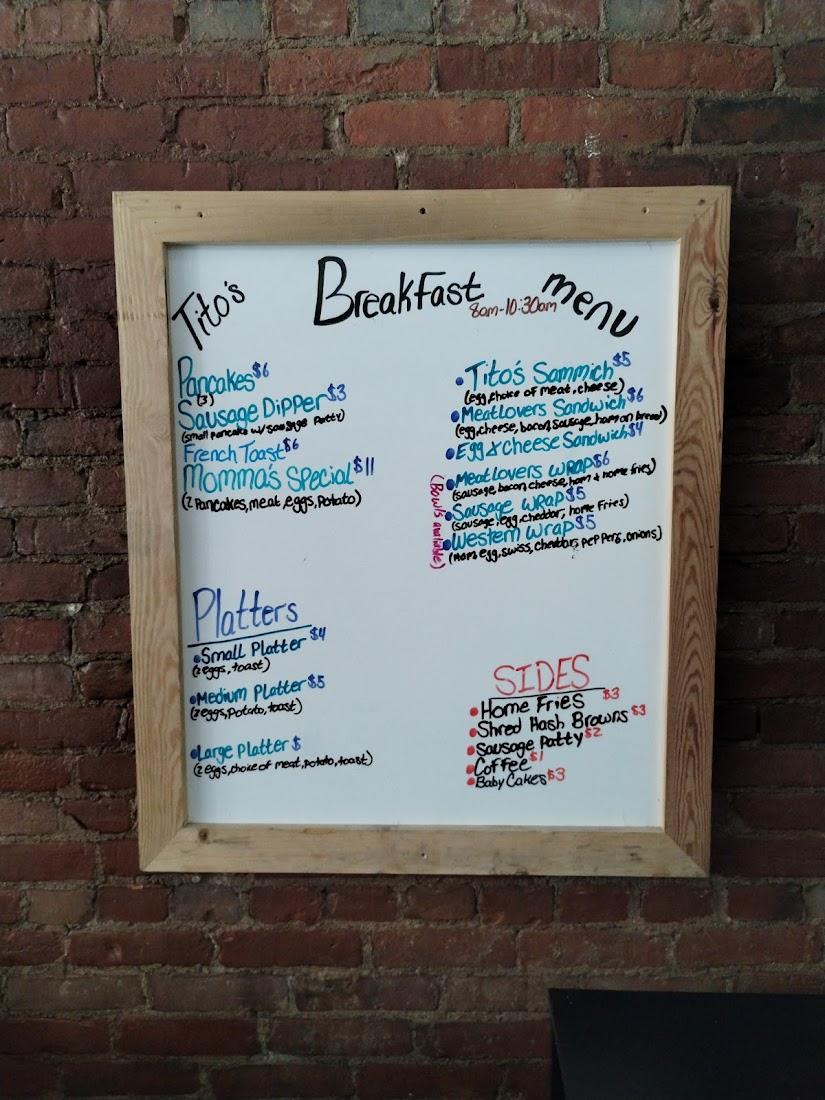 Tito's Breakfast menu
8am-10:30am
Pancakes $6
(3)
Sausage Dipper $3
(small pancake w/ sausage Patty)
French Toast $6
Momma's Special $11
(2 Pancakes, meat, eggs, Potato)
Platters
Small Platter $4
(2 eggs, toast)
Medium Platter $5
(2 eggs, Potato, toast)
Large Platter $
(2 eggs, choice of meat, potato, toast)
Tito's Sammich $5
(egg, choice of meat, cheese)
Meatlovers Sandwich $6
(egg, cheese, bacon, sausage, ham on bread)
Egg & cheese Sandwich $4
Meatlovers wrap $6
(sausage, bacon, cheese, ham & home fries)
Sausage wrap $5
(sausage, egg, cheddar, home Fries)
Western wrap $5
(Ham, egg, swiss, cheddar, peppers, onions)
(Bowls available)
SIDES
Home Fries $3
Shred Hash Browns $3
Sausage Patty $2
Coffee $1
Baby Cakes $3